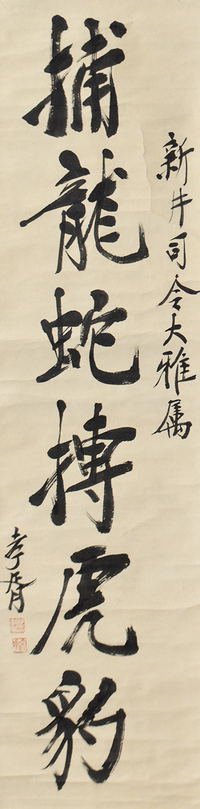 新井司令大雅属
捕龍蛇搏虎豹
孝胥